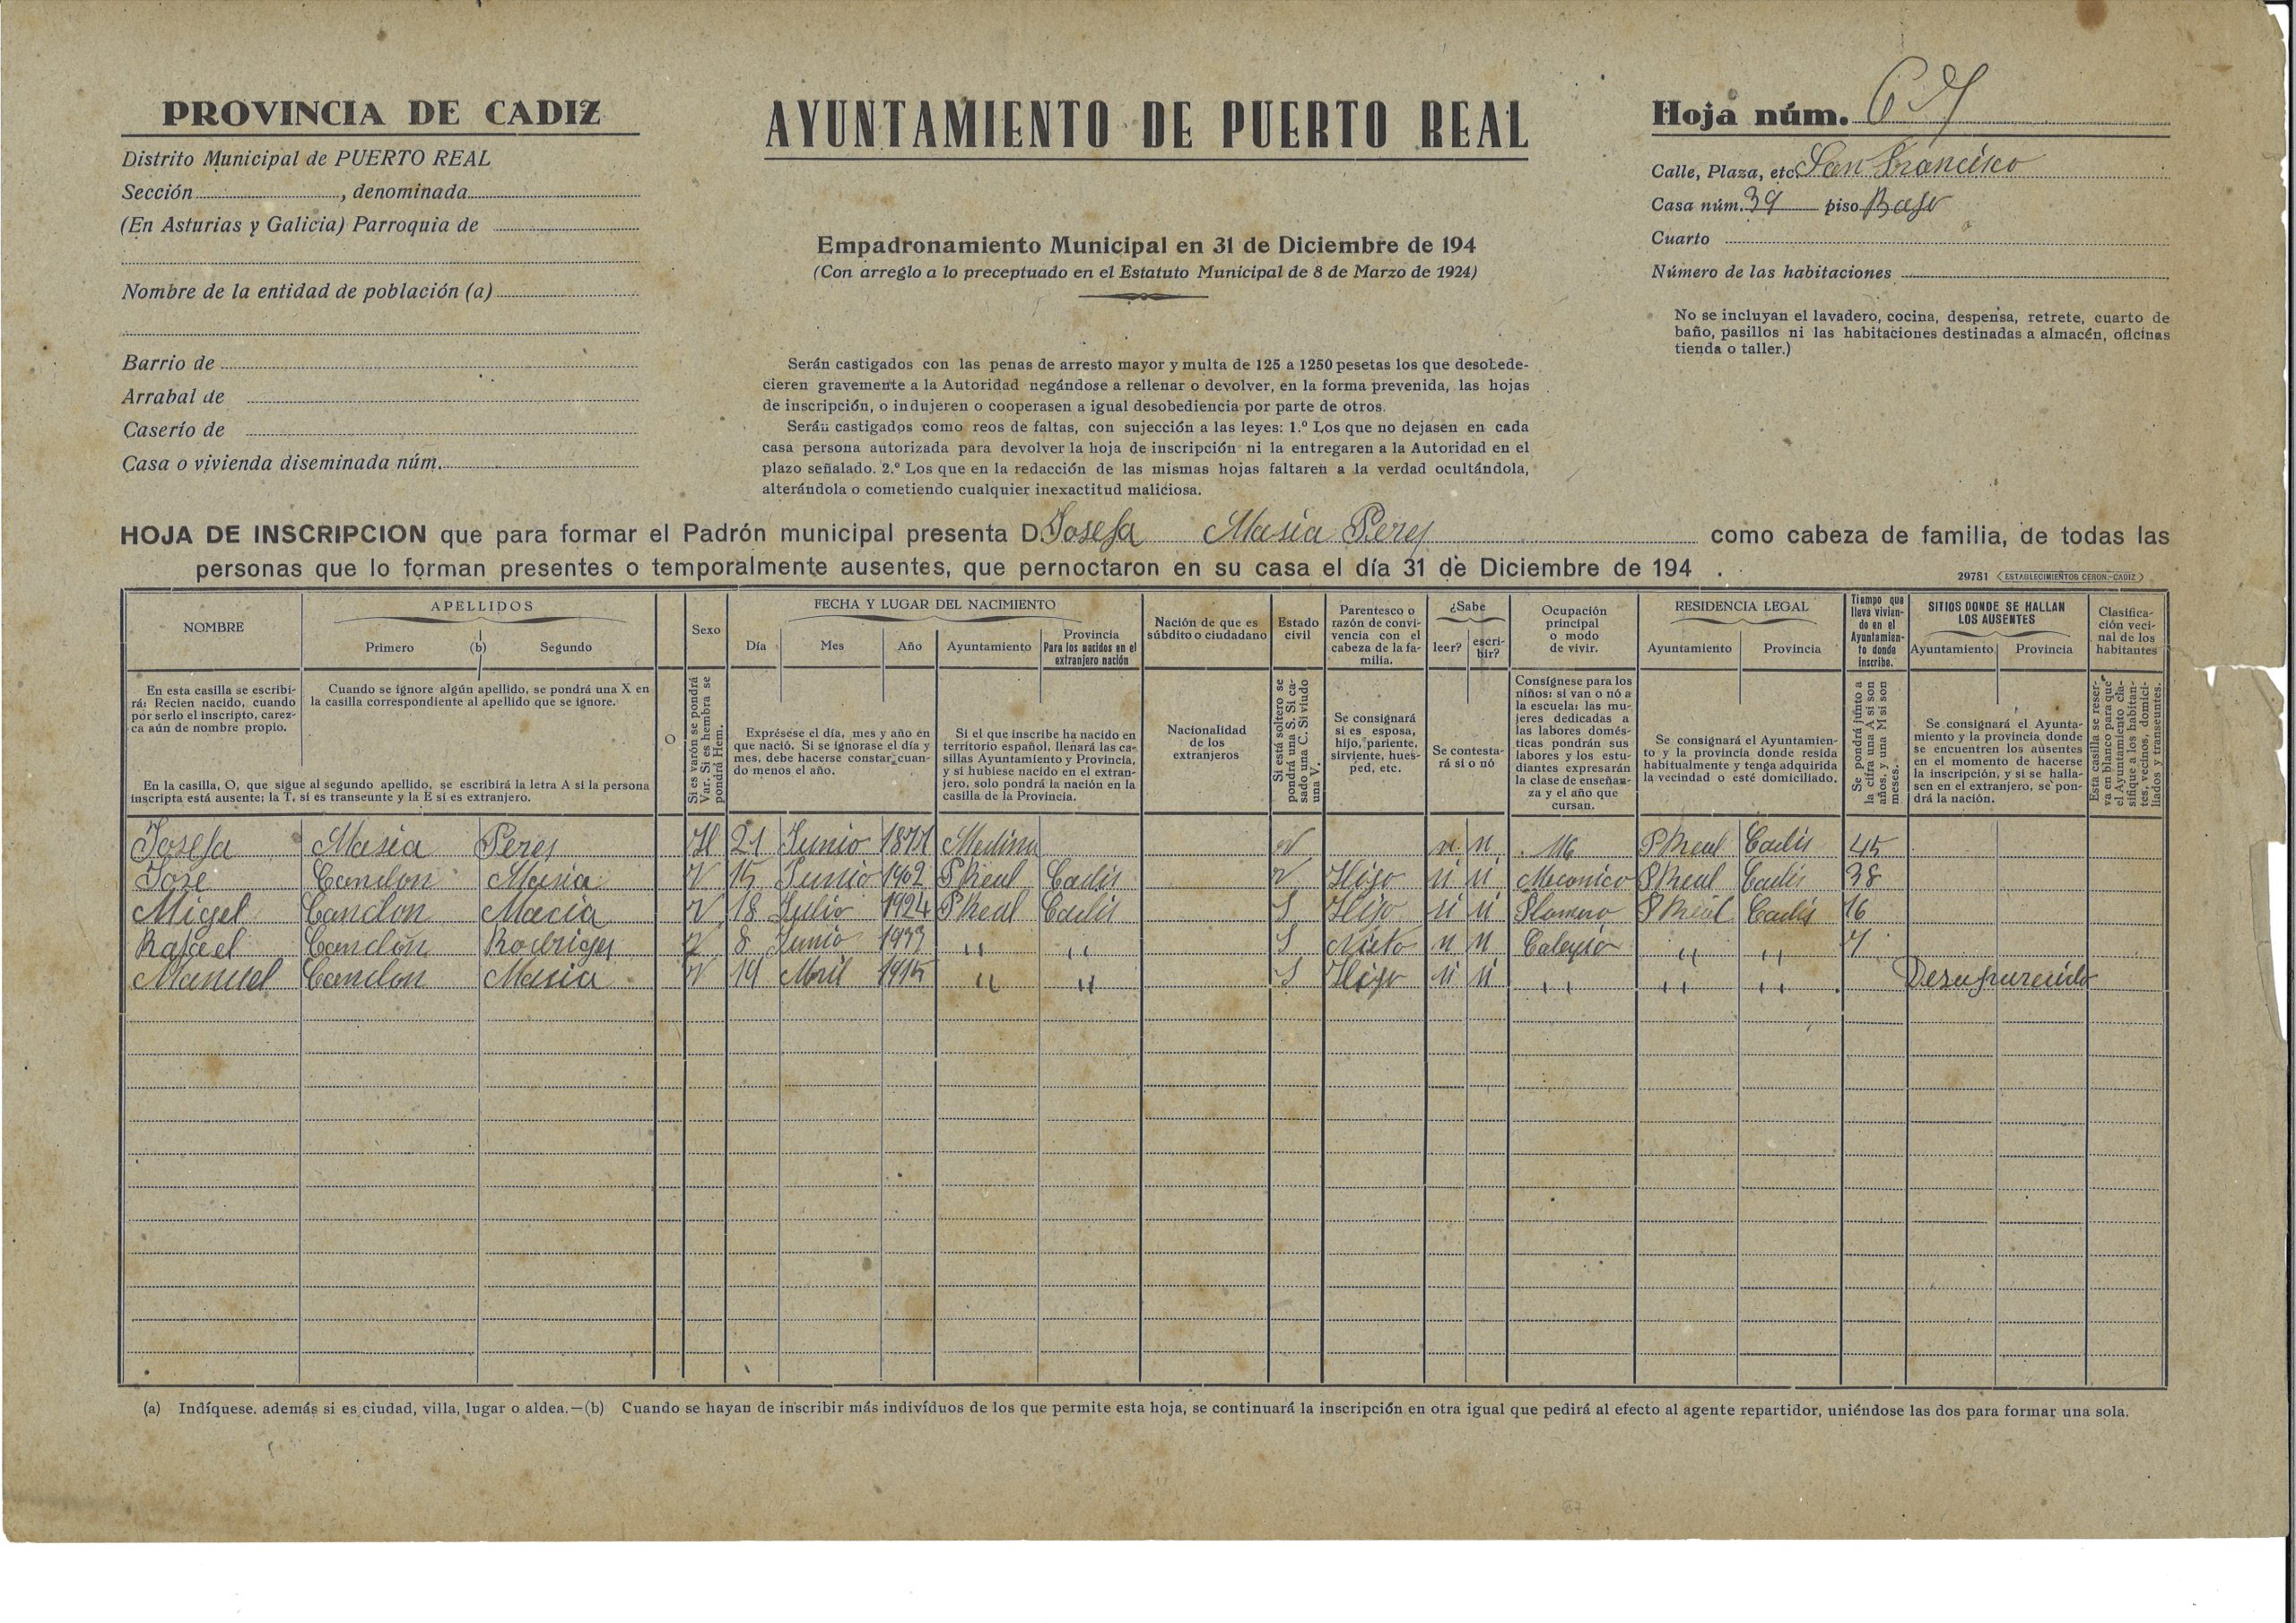 PROVINCIA DE CADIZ
Distrito Municipal de PUERTO REAL
Sección , denominada
(En Asturias y Galicia) Parroquia de
Nombre de la entidad de población (a)
Barrio de
Arrabal de
Caserío de
Casa o vivienda diseminada núm.
AYUNTAMIENTO DE PUERTO REAL
Empadronamiento Municipal en 31 de Diciembre de 194
(Con arreglo a lo preceptuado en el Estatuto Municipal de 8 de Marzo de 1924)
Serán castigados con las penas de arresto mayor y multa de 125 a 1250 pesetas los que desobede-
cieren gravemente a la Autoridad negándose a rellenar o devolver, en la forma prevenida, las hojas
de inscripción, o indujeren o cooperasen a igual desobediencia por parte de otros.
Serán castigados como reos de faltas, con sujección a las leyes: 1.º Los que no dejasen en cada
casa persona autorizada para devolver la hoja de inscripción ni la entregaren a la Autoridad en el
plazo señalado. 2.º Los que en la redacción de las mismas hojas faltaren a la verdad ocultándola,
alterándola o cometiendo cualquier inexactitud maliciosa.
Hoja núm. 67
Calle, Plaza, etc. San Francisco
Casa núm. 39 piso Bajo
Cuarto
Número de las habitaciones
No se incluyan el lavadero, cocina, despensa, retrete, cuarto de
baño, pasillos ni las habitaciones destinadas a almacén, oficinas
tienda o taller.)
HOJA DE INSCRIPCION que para formar el Padrón municipal presenta D. Josefa Masia Perez como cabeza de familia, de todas las
personas que lo forman presentes o temporalmente ausentes, que pernoctaron en su casa el día 31 de Diciembre de 194 .
29781 ESTABLECIMIENTOS CERON.-CADIZ
NOMBRE
APELLIDOS
Primero (b) Segundo
O
Sexo
FECHA Y LUGAR DEL NACIMIENTO
Día Mes Año Ayuntamiento
Provincia
Para los nacidos en el
extranjero nación
Nación de que es
súbdito o ciudadano
Estado
civil
Parentesco o
razón de convi-
vencia con el
cabeza de la fa-
milia.
¿Sabe
leer? escri-
bir?
Ocupación
principal
o modo
de vivir.
RESIDENCIA LEGAL
Ayuntamiento Provincia
Tiempo que
lleva vivien-
do en el
Ayuntamien-
to donde
inscribe.
SITIOS DONDE SE HALLAN
LOS AUSENTES
Ayuntamiento Provincia
Clasifica-
ción veci-
nal de los
habitantes
En esta casilla se escribi-
rá: Recien nacido, cuando
por serlo el inscripto, carez-
ca aún de nombre propio.
Cuando se ignore algún apellido, se pondrá una X en
la casilla correspondiente al apellido que se ignore.
En la casilla, O, que sigue al segundo apellido, se escribirá la letra A si la persona
inscripta está ausente; la T, si es transeunte y la E si es extranjero.
Si es varón se pondrá
Var. Si es hembra se
pondrá Hem.
Exprésese el día, mes y año en
que nació. Si se ignorase el día y
mes, debe hacerse constar cuan-
do menos el año.
Si el que inscribe ha nacido en
territorio español, llenará las ca-
sillas Ayuntamiento y Provincia,
y si hubiese nacido en el extran-
jero, solo pondrá la nación en la
casilla de la Provincia.
Nacionalidad
de los
extranjeros
Si está soltero se
pondrá una S. Si ca-
sado una C. Si viudo
una V.
Se consignará
si es esposa,
hijo, pariente,
sirviente, hues-
ped, etc.
Se contesta-
rá si o nó
Consígnese para los
niños: si van o nó a
la escuela: las mu-
jeres dedicadas a
las labores domés-
ticas pondrán sus
labores y los estu-
diantes expresarán
la clase de enseñan-
za y el año que
cursan.
Se consignará el Ayuntamien-
to y la provincia donde resida
habitualmente y tenga adquirida
la vecindad o esté domiciliado.
Se pondrá junto a
la cifra una A si son
años, y una M si son
meses.
Se consignará el Ayunta-
miento y la provincia donde
se encuentren los ausentes
en el momento de hacerse
la inscripción, y si se halla-
sen en el extranjero, se pon-
drá la nación.
Esta casilla se reser-
va en blanco para que
el Ayuntamiento cla-
sifique a los habitan-
tes, vecinos, domici-
liados y transeuntes.
Josefa Masia Perez H 21 Junio Medina V n n P Real Cadis 45
Jose Candon Masia V 15 Junio 1902 P Real Cadis V Hijo si si Meconico P Real Cadis 38
Migel Candon Macia V 18 Julio 1924 P Real Cadis S Hijo si si Plomero P Real Cadis 16
Rafael Candon Rodrigez V 8 Junio 1933 " " S Nieto n n Colegio " " 7
Manuel Candon Masia V 19 Abril 1915 " " S Hijo si si " " " Desaparecido
(a) Indíquese. además si es ciudad, villa, lugar o aldea.—(b) Cuando se hayan de inscribir más indivíduos de los que permite esta hoja, se continuará la inscripción en otra igual que pedirá al efecto al agente repartidor, uniéndose las dos para formar una sola.